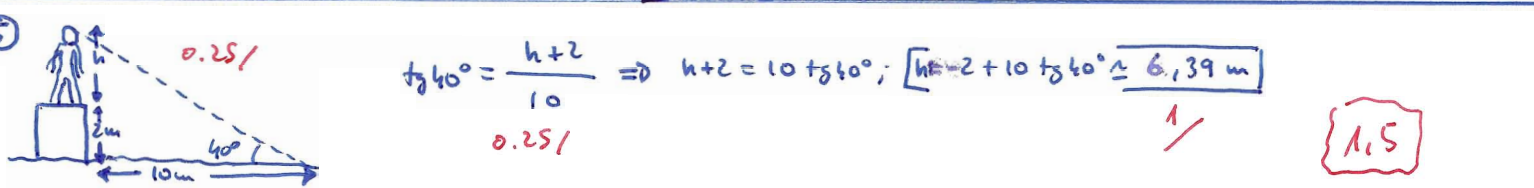 5
h
0.25/
2m
40°
10m
tg40° = h+2 / 10 ⇒ h+2 = 10 tg40°; h = -2 + 10 tg40° ≃ 6,39 m
0.25/
1/
1,5